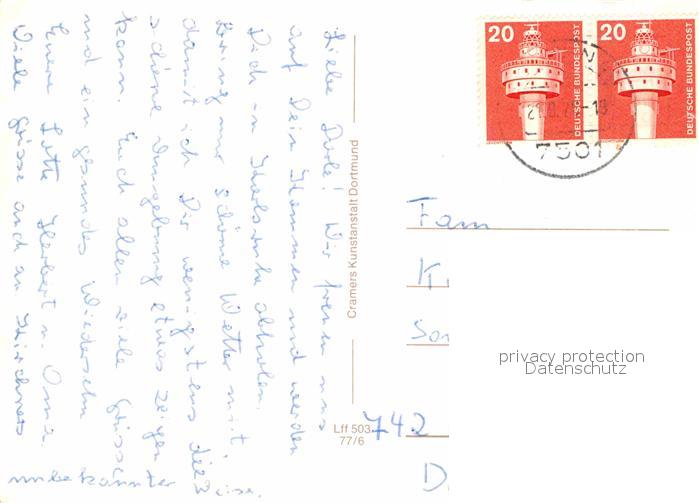 Liebe Dode! Wir freuen uns
auf Dein Kommen und werden
Dich in Karlsruhe abholen.
Bring nur schöne Wetter mit,
damit ich Dir wenigstens die
schöne Umgebung etwas zeigen
kann. Euch allen viele Grüsse
und ein gesundes Wiedersehn
Euere Lotte Herbert u. Oma.
Viele Grüsse auch an Kirchners
unbekannter
Cramers Kunstanstalt Dortmund
Lff 503
77/6
20
DEUTSCHE BUNDESPOST
20
DEUTSCHE BUNDESPOST
7501
Fam
K
742
D
privacy protection
Datenschutz